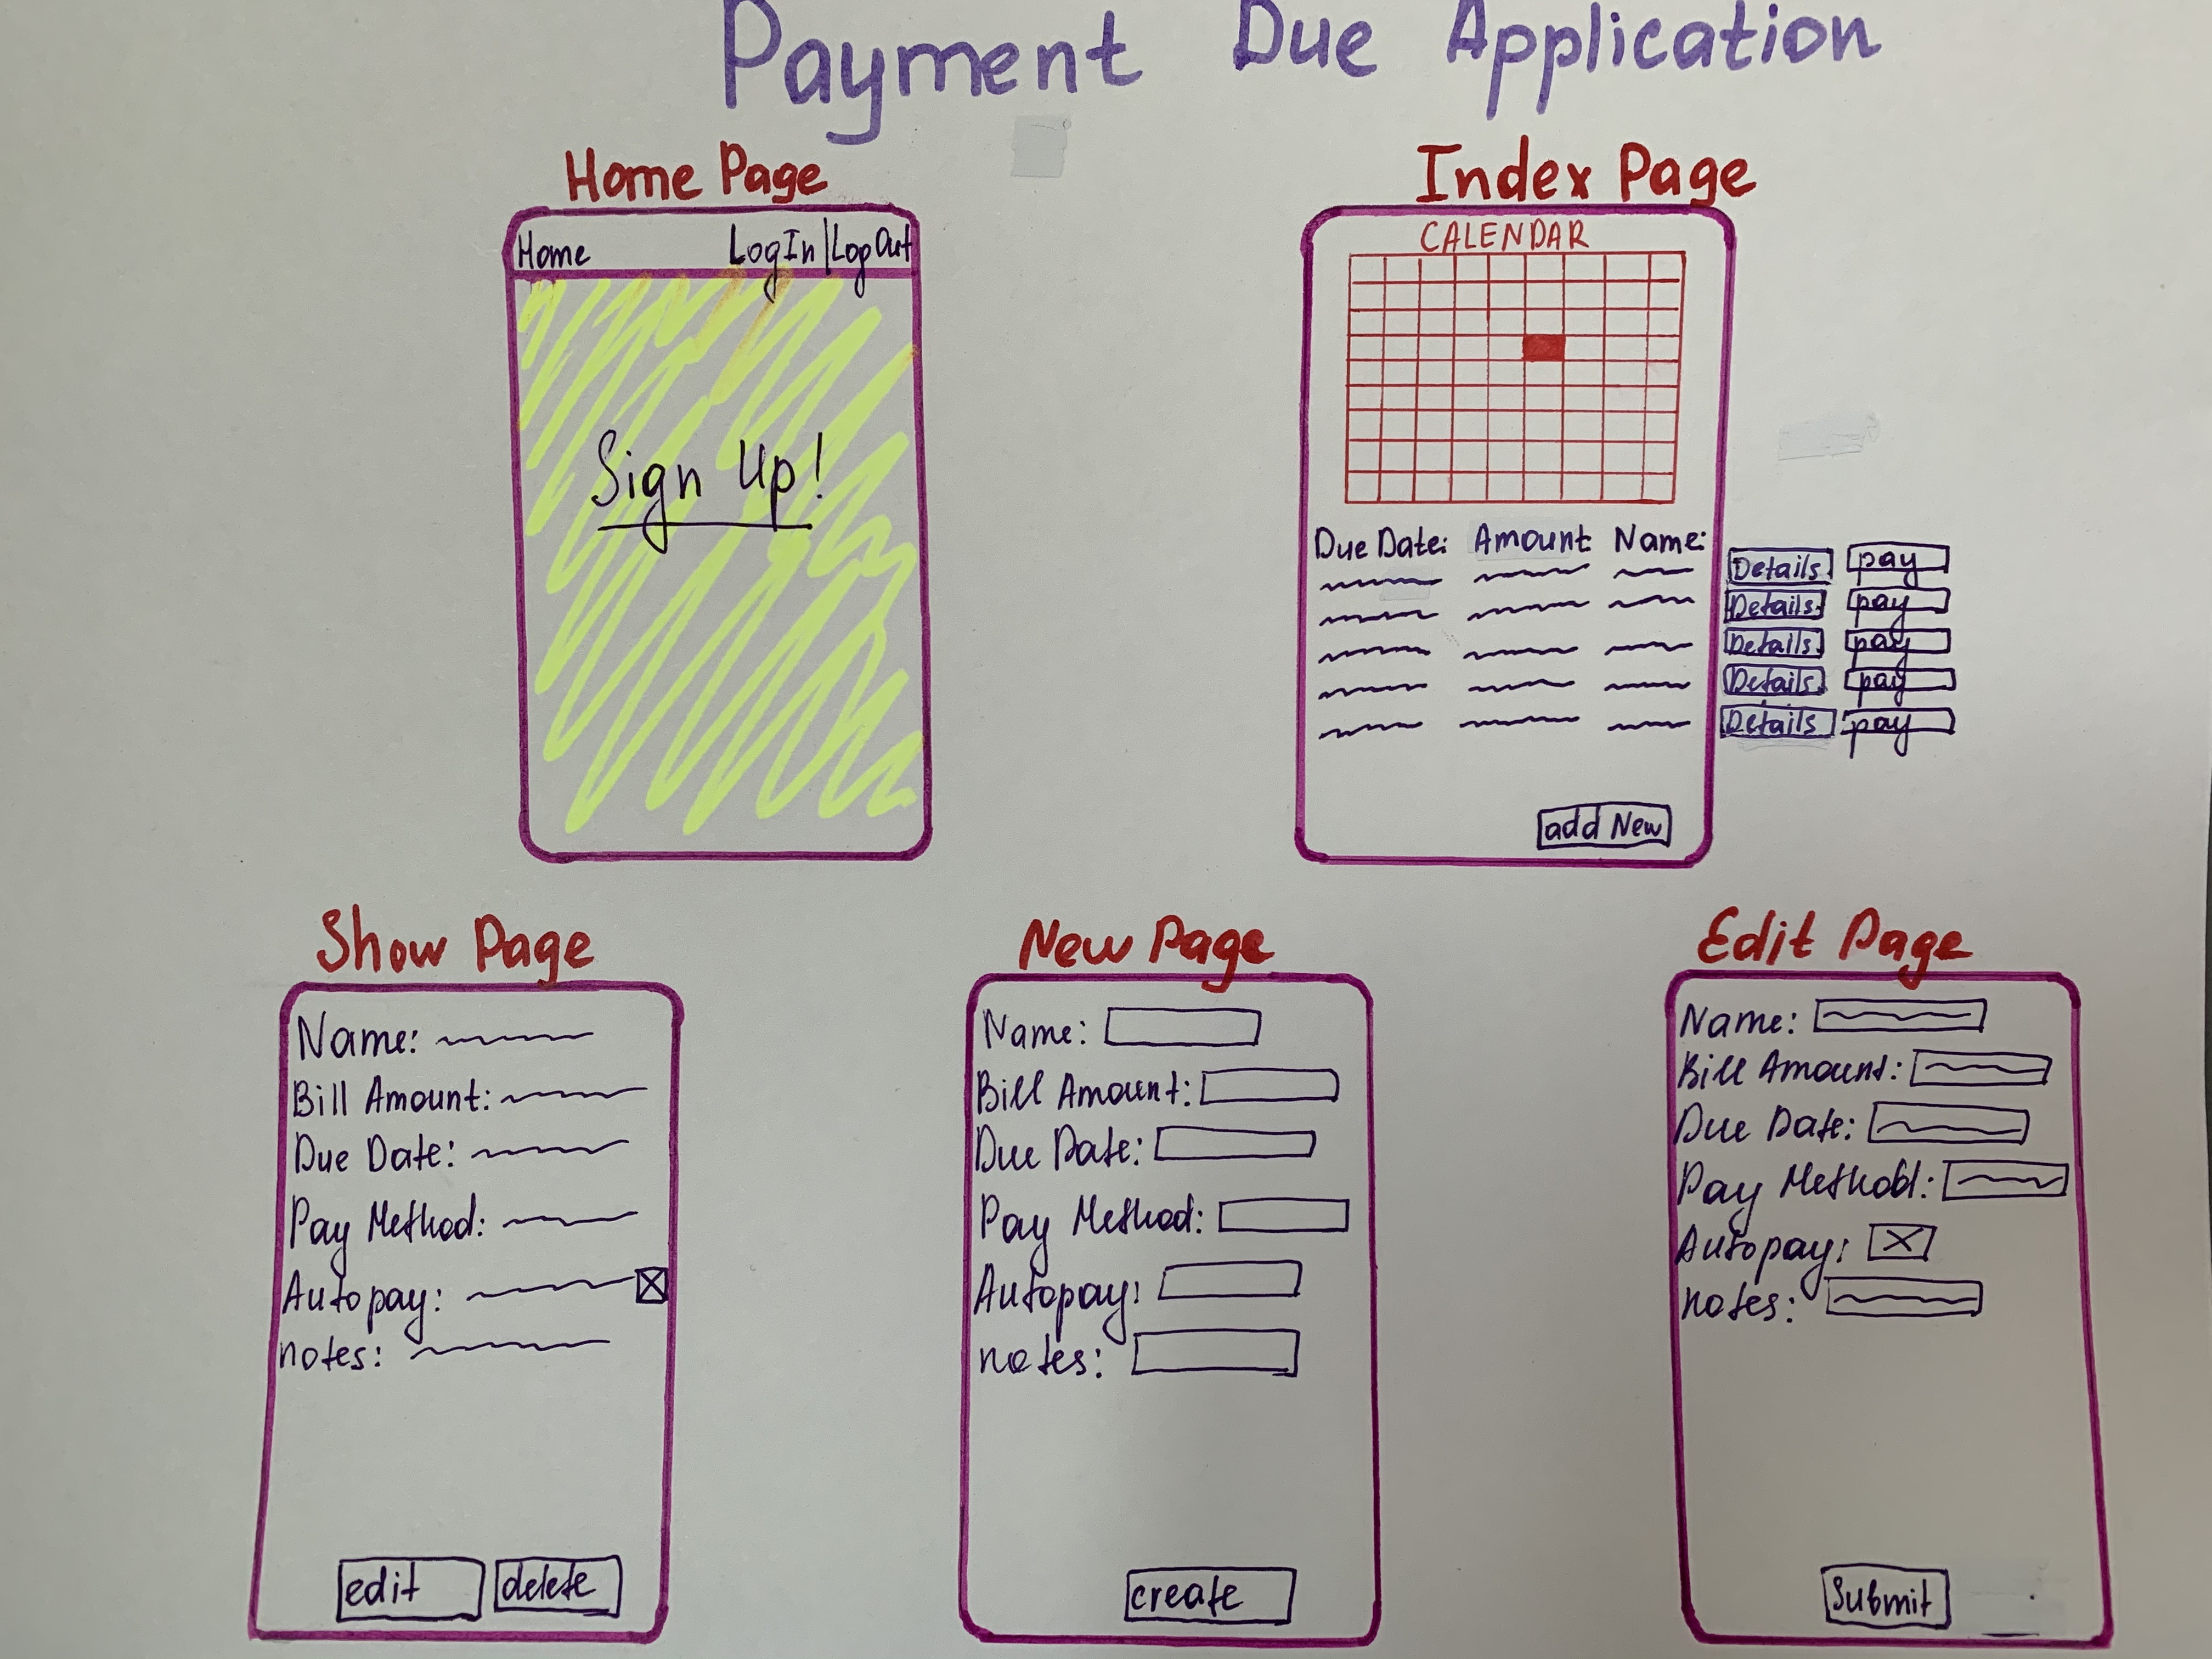 Payment Due Application
Home Page
Home LogIn | LogOut
Sign Up!
Index Page
CALENDAR
Due Date: Amount Name:
Details pay
Details pay
Details pay
Details pay
Details pay
add New
Show Page
Name:
Bill Amount:
Due Date:
Pay Method:
Autopay:
notes:
edit delete
New Page
Name:
Bill Amount:
Due Date:
Pay Method:
Autopay:
notes:
create
Edit Page
Name:
Bill Amount:
Due Date:
Pay Method:
Autopay:
notes:
Submit